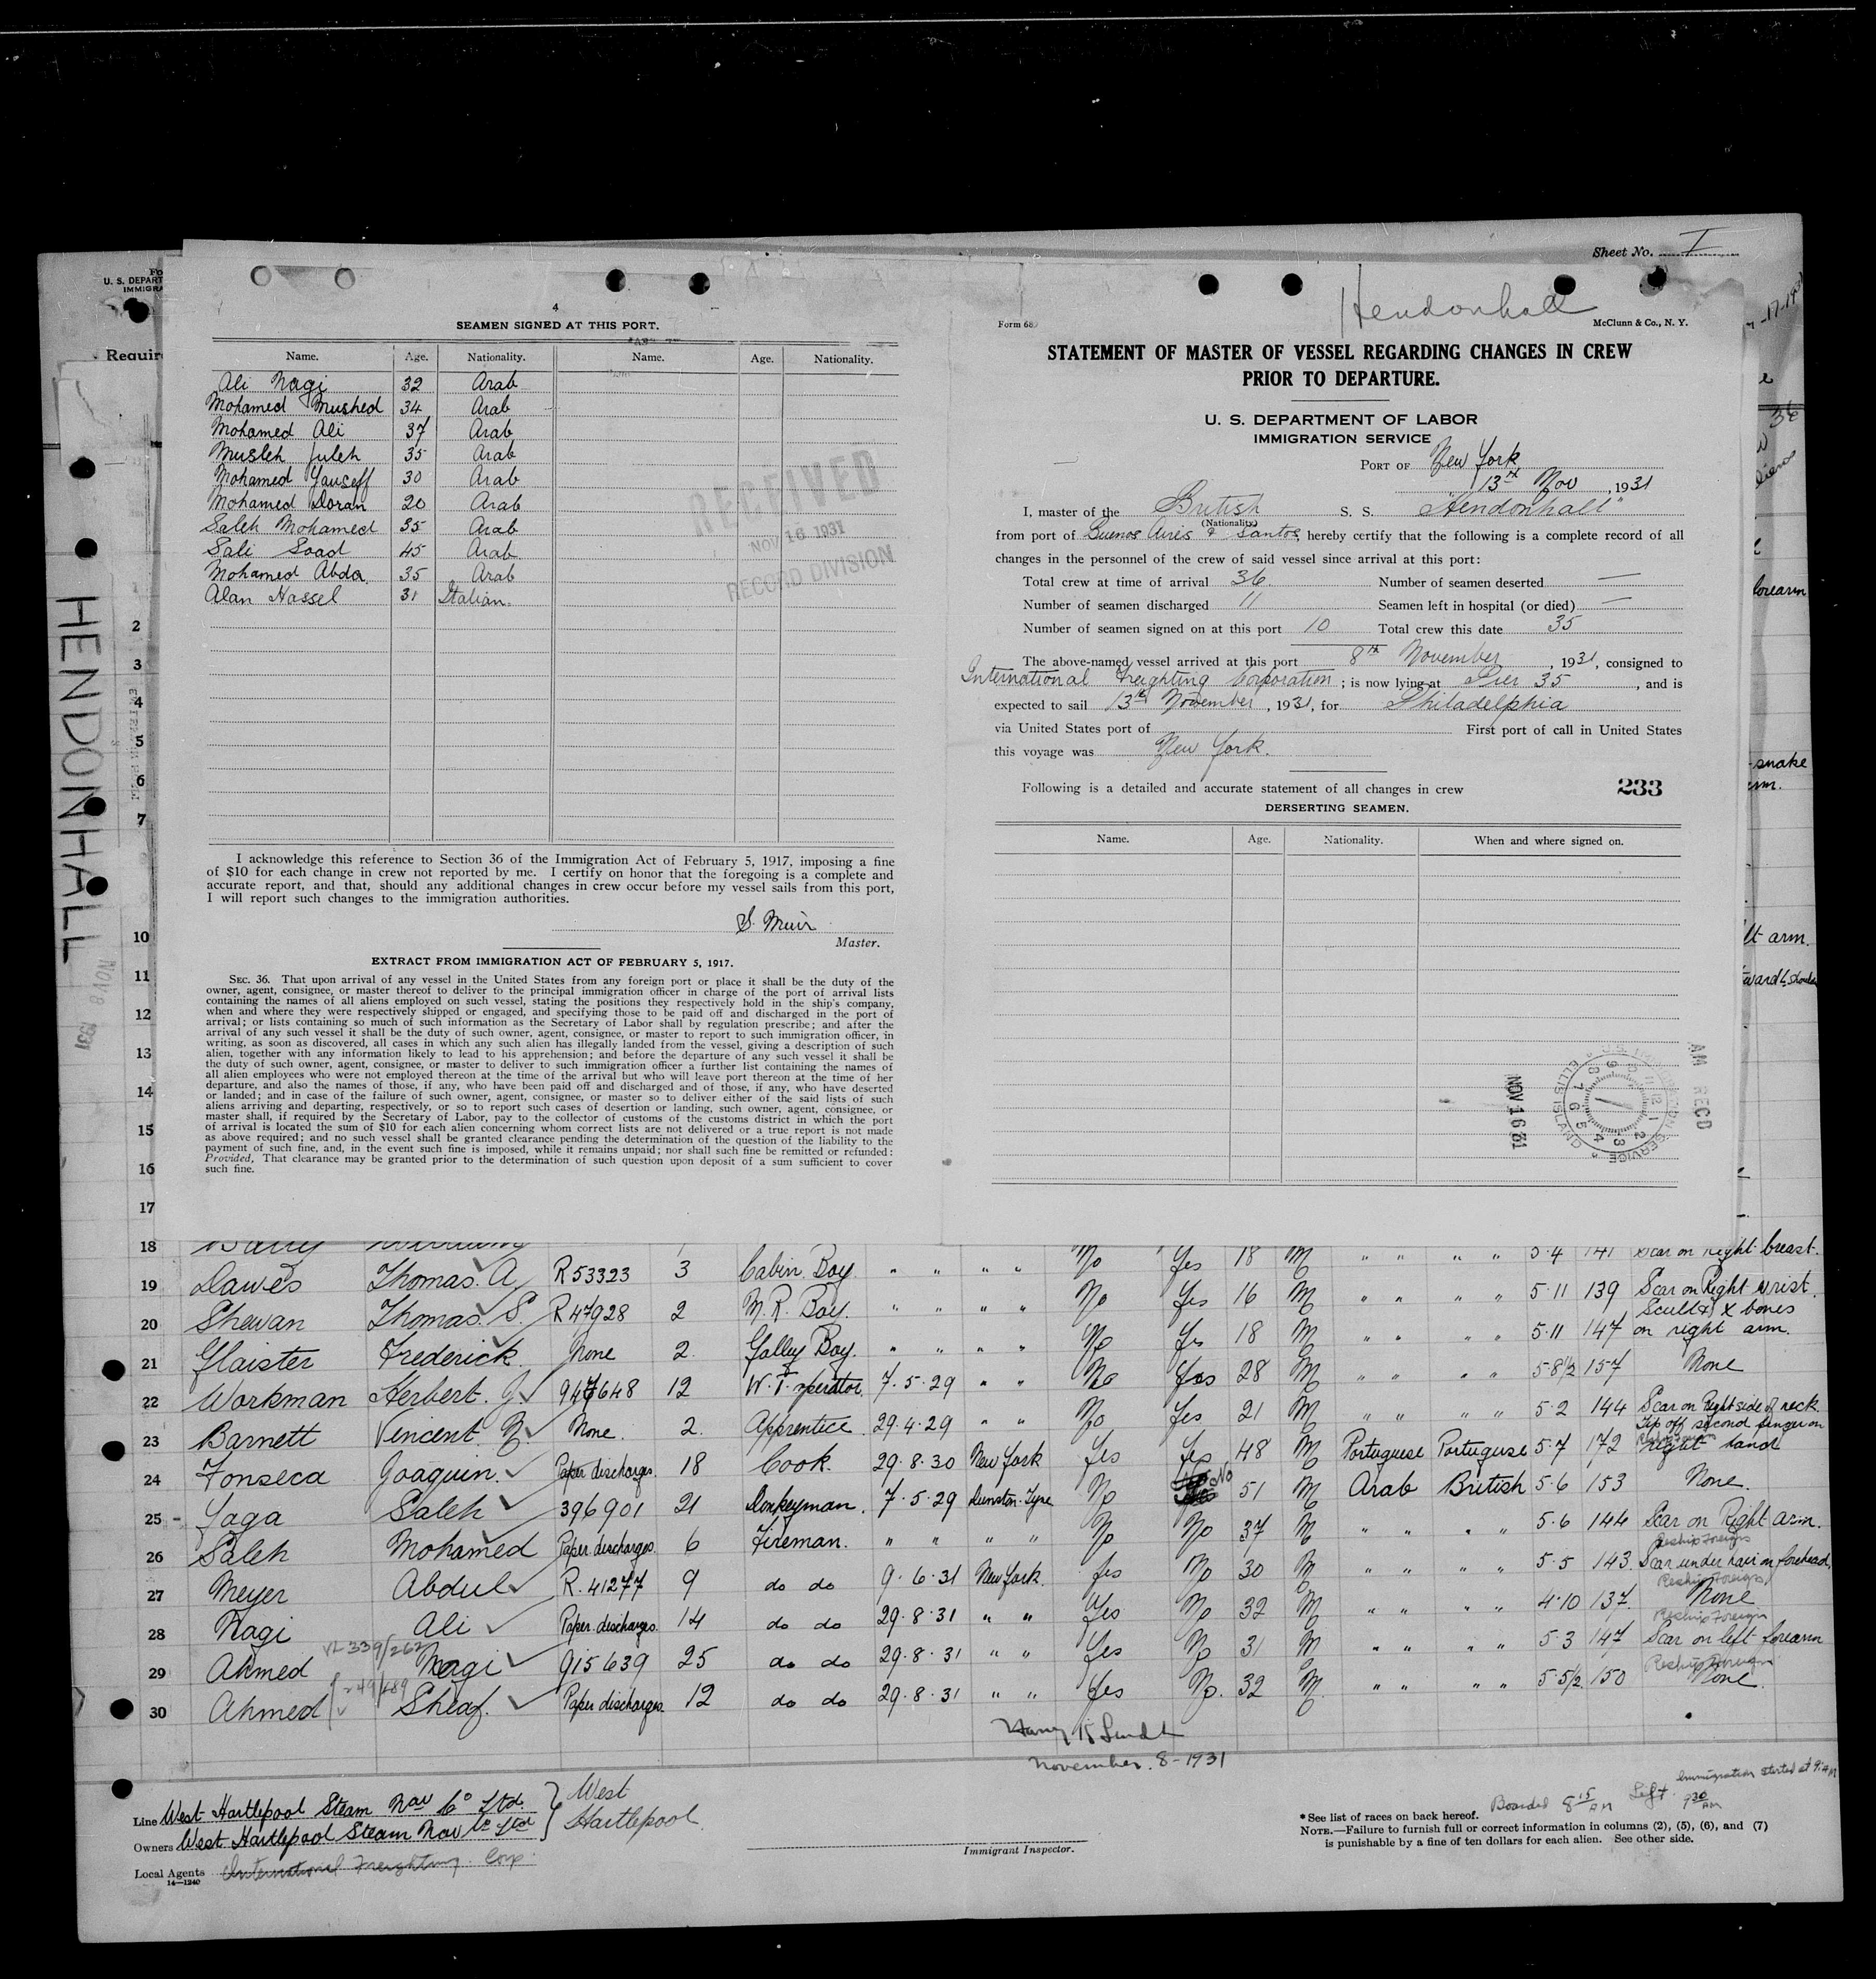 Sheet No. I
4
SEAMEN SIGNED AT THIS PORT.
Name. Age. Nationality. Name. Age. Nationality.
Ali Nagi 32 Arab
Mohamed Mushed 34 Arab
Mohamed Ali 37 Arab
Musleh Juleh 35 Arab
Mohamed Yauseff 30 Arab
Mohamed Doran 20 Arab
Saleh Mohamed 35 Arab
Sali Saad 45 Arab
Mohamed Abda. 35 Arab
Alan Nassel 31 Italian.
RECEIVED
NOV 16 1931
RECORD DIVISION
I acknowledge this reference to Section 36 of the Immigration Act of February 5, 1917, imposing a fine
of $10 for each change in crew not reported by me. I certify on honor that the foregoing is a complete and
accurate report, and that, should any additional changes in crew occur before my vessel sails from this port,
I will report such changes to the immigration authorities.
S. Muir
Master.
EXTRACT FROM IMMIGRATION ACT OF FEBRUARY 5, 1917.
SEC. 36. That upon arrival of any vessel in the United States from any foreign port or place it shall be the duty of the
owner, agent, consignee, or master thereof to deliver to the principal immigration officer in charge of the port of arrival lists
containing the names of all aliens employed on such vessel, stating the positions they respectively hold in the ship's company,
when and where they were respectively shipped or engaged, and specifying those to be paid off and discharged in the port of
arrival; or lists containing so much of such information as the Secretary of Labor shall by regulation prescribe; and after the
arrival of any such vessel it shall be the duty of such owner, agent, consignee, or master to report to such immigration officer, in
writing, as soon as discovered, all cases in which any such alien has illegally landed from the vessel, giving a description of such
alien, together with any information likely to lead to his apprehension; and before the departure of any such vessel it shall be
the duty of such owner, agent, consignee, or master to deliver to such immigration officer a further list containing the names of
all alien employees who were not employed thereon at the time of the arrival but who will leave port thereon at the time of her
departure, and also the names of those, if any, who have been paid off and discharged and of those, if any, who have deserted
or landed; and in case of the failure of such owner, agent, consignee, or master so to deliver either of the said lists of such
aliens arriving and departing, respectively, or so to report such cases of desertion or landing, such owner, agent, consignee, or
master shall, if required by the Secretary of Labor, pay to the collector of customs of the customs district in which the port
of arrival is located the sum of $10 for each alien concerning whom correct lists are not delivered or a true report is not made
as above required; and no such vessel shall be granted clearance pending the determination of the question of the liability to the
payment of such fine, and, in the event such fine is imposed, while it remains unpaid; nor shall such fine be remitted or refunded:
Provided, That clearance may be granted prior to the determination of such question upon deposit of a sum sufficient to cover
such fine.
Hendonhall
Form 68
McClunn & Co., N. Y.
STATEMENT OF MASTER OF VESSEL REGARDING CHANGES IN CREW
PRIOR TO DEPARTURE.
U. S. DEPARTMENT OF LABOR
IMMIGRATION SERVICE
PORT OF New York
13th Nov , 1931
I, master of the British S. S. "Hendonhall"
(Nationality)
from port of Buenos Aires & Santos, hereby certify that the following is a complete record of all
changes in the personnel of the crew of said vessel since arrival at this port:
Total crew at time of arrival 36. Number of seamen deserted —
Number of seamen discharged 11 Seamen left in hospital (or died) —
Number of seamen signed on at this port 10 Total crew this date 35
The above-named vessel arrived at this port 8th November , 1931, consigned to
International Freighting Corporation ; is now lying at Pier 35 , and is
expected to sail 13th November , 1931, for Philadelphia
via United States port of First port of call in United States
this voyage was New York.
233
Following is a detailed and accurate statement of all changes in crew
DERSERTING SEAMEN.
Name. Age. Nationality. When and where signed on.
AM RECD
NOV 16 31
ELLIS ISLAND
U. S. DEPART
IMMIGRA
Requir
HENDONHALL
NOV 8 1931
2
3
4
5
6
7
10
11
12
13
14
15
16
17
forearm
snake
lt arm.
18 No Yes 18 M " " " " 5·4 141 Scar on right breast.
19 Dawes Thomas. A R53323 3 Cabin Boy. " " " " No Yes 16 M " " " " 5·11 139 Scar on Right wrist.
20 Shewan Thomas. S. R47928 2 M. R. Boy. " " " " No Yes 18 M " " " " 5·11 147 Scull & X bones on right arm.
21 Glaister Frederick. None 2. Galley Boy. " " " " No Yes 28 M " " " " 5·8½ 157 None
22 Workman Herbert. J. 947648 12 W. T. operator. 7·5·29 " " No Yes 21 M " " " " 5·2 144 Scar on Right side of neck.
23 Barnett Vincent. None. 2. Apprentice. 29·4·29 " " Yes Yes 48 M Portuguese Portuguse 5·7 172 Tip off second finger on right hand
24 Fonseca Joaquin. Paper discharges. 18 Cook. 29·8·30 New York No 51 M Arab British 5·6 153 None.
25 Saleh 396901 21 Donkeyman. 7·5·29 Dunston-Tyne No No 37 M " " " " 5·6 144 Scar on Right arm.
26 Saleh Mohamed Paper discharges. 6 Fireman. " " " " Yes No 30 M " " " " 5·5 143. Scar under hair on forehead.
27 Meyer Abdul R. 41277 9 do do 9·6·31 New York. Yes No 32 M " " " " 4·10 137. None
28 Nagi Ali Paper discharges. 14 do do 29·8·31 " " Yes No 31 M " " " " 5·3 147 Scar on left forearm
29 Ahmed Nagi 915639 25 do do 29·8·31 " " Yes No. 32 M. " " " " 5·5½ 150 None.
30 Ahmed Sheaf. Paper discharges. 12 do do 29·8·31 " "
November. 8-1931
Line West Hartlepool Steam Nav Co Ltd. } West
Owners West Hartlepool Steam Nav Co Ltd } Hartlepool.
Local Agents International Freighting Corp.
14—1240
Immigrant Inspector.
Boarded 8 15 AM Left 9 30 AM Immigration started at
* See list of races on back hereof.
NOTE.—Failure to furnish full or correct information in columns (2), (5), (6), and (7)
is punishable by a fine of ten dollars for each alien. See other side.